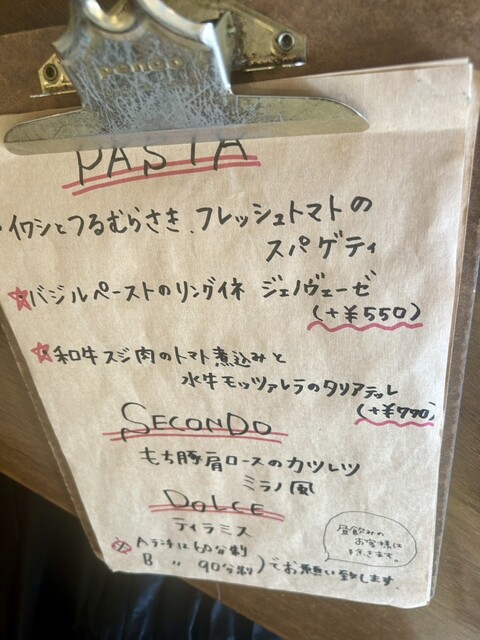 PASTA
・イワシとつるむらさき、フレッシュトマトの
スパゲティ
☆バジルペーストのリングイネ ジェノヴェーゼ
(+¥550)
☆和牛スジ肉のトマト煮込みと
水牛モッツァレラのタリアテッレ
(+¥770)
SECONDO
もち豚肩ロースのカツレツ
ミラノ風
DOLCE
ティラミス
Aランチは60分制
B 〃 90分制)でお願い致します。
昼飲みの
お客様は